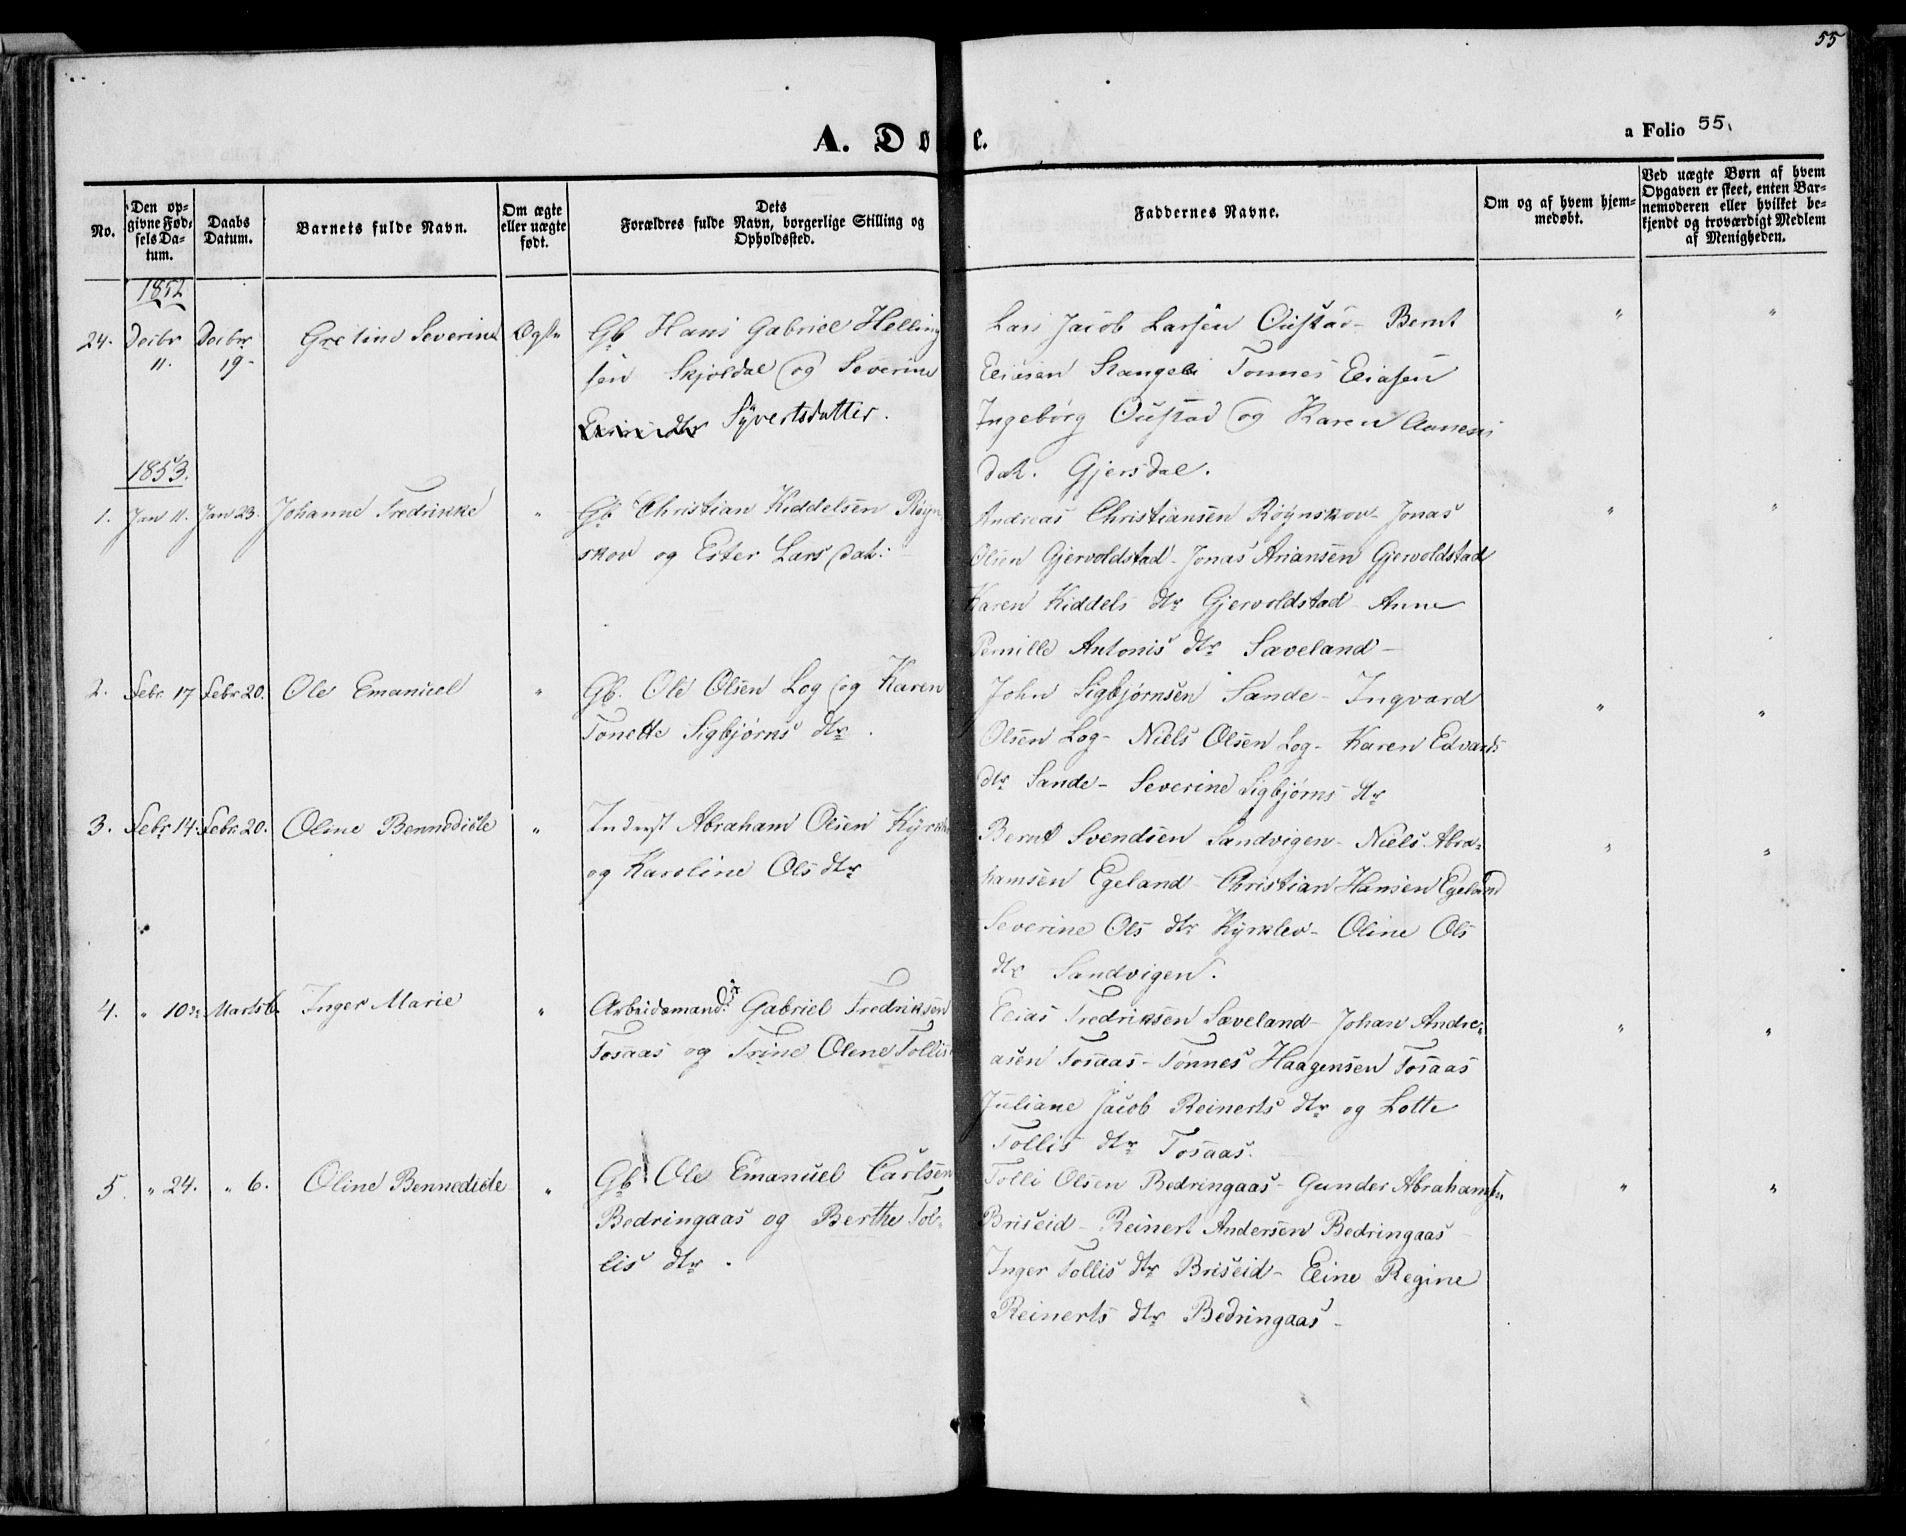 55
A. Dø e.
a Folio 55.
No.
Den op-
givne Fød-
sels Da-
tum.
Daabs
Datum.
Barnets fulde Navn.
Om ægte
eller uægte
født.
Dets
Forældres fulde Navn, borgerlige Stilling og
Opholdssted.
Faddernes Navne.
Om og af hvem hjem-
medøbt.
Ved uægte Børn af hvem
Opgaven er skeet, enten Bar-
nemoderen eller hvilket be-
kjendt og troværdigt Medlem
af Menigheden.
1852
24. Decbr 11. Decbr 19- Gretine Severine Ægte
Gb Hans Gabriel Helling
sen Skjoldal og Severine
Syvertsdatter.
Lars Jacob Larsen Oustad - Bernt
Eliasen Stangeli Tonnes Eliasen
Ingeborg Oustad og Karen Aanens
dat. Gjersdal.
" "
1853.
1. Jan 11. Jan 23. Johanne Fredrikke "
Gb Christian Kiddelsen Røyn
skov og Ester Lars dat:
Andreas Christiansen Røynskov - Jonas
Olsen Gjervoldstad - Jonas Ariansen Gjervoldstad
Karen Kiddels dtr Gjervoldstad - Anne
Pernille Antonis dtr Saveland -
" "
2. Febr. 17 Febr. 20. Ole Emanuel "
Gb. Ole Olsen Log og Karen
Tonette Sigbjørns dtr.
John Sigbjørnsen Sande - Ingvard
Olsen Log - Niels Olsen Log - Karen Edvards
dtr Sande - Severine Sigbjørns dtr
" "
3. Febr 14. Febr. 20. Oline Bennedicte "
Inderst Abraham Olsen Kyrk
og Karoline Ols dtr
Bernt Svendsen Sandvigen - Niels Abra-
hamsen Egeland - Christian Hansen Egeland
Severine Ols dtr Kyrklev - Oline Ols
dtr Sandvigen.
" "
4. " 10de Marts 6. Inger Marie "
Arbeidsmand Gabriel Fredriksen
Tosaas og Trine Olene Tollis
Elias Fredriksen Saveland - Johan Andre-
asen Tosaas - Tønnes Haagensen Tosaas
Juliane Jacob Reinerts dtr og Lotte
Tollis dtr Tosaas.
" "
5. " 24. " 6. Oline Bennedicte "
Gb Ole Emanuel Carlsen
Bedringaas og Berthe Tol-
lis dtr.
Tolli Olsen Bedringaas - Gunder Abrahamsen
Briseid - Reinert Andersen Bedringaas -
Inger Tollis dtr Briseid - Eline Regine
Reinerts dtr Bedringaas -
" "